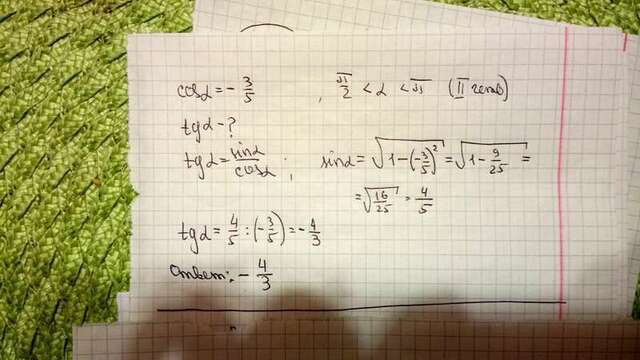 cosα = -3/5, π/2 < α < π (II четв)
tgα - ?
tgα = sinα/cosα; sinα = √(1-(-3/5)²) = √(1-9/25) =
= √(16/25) = 4/5
tgα = 4/5 : (-3/5) = -4/3
Ответ: -4/3